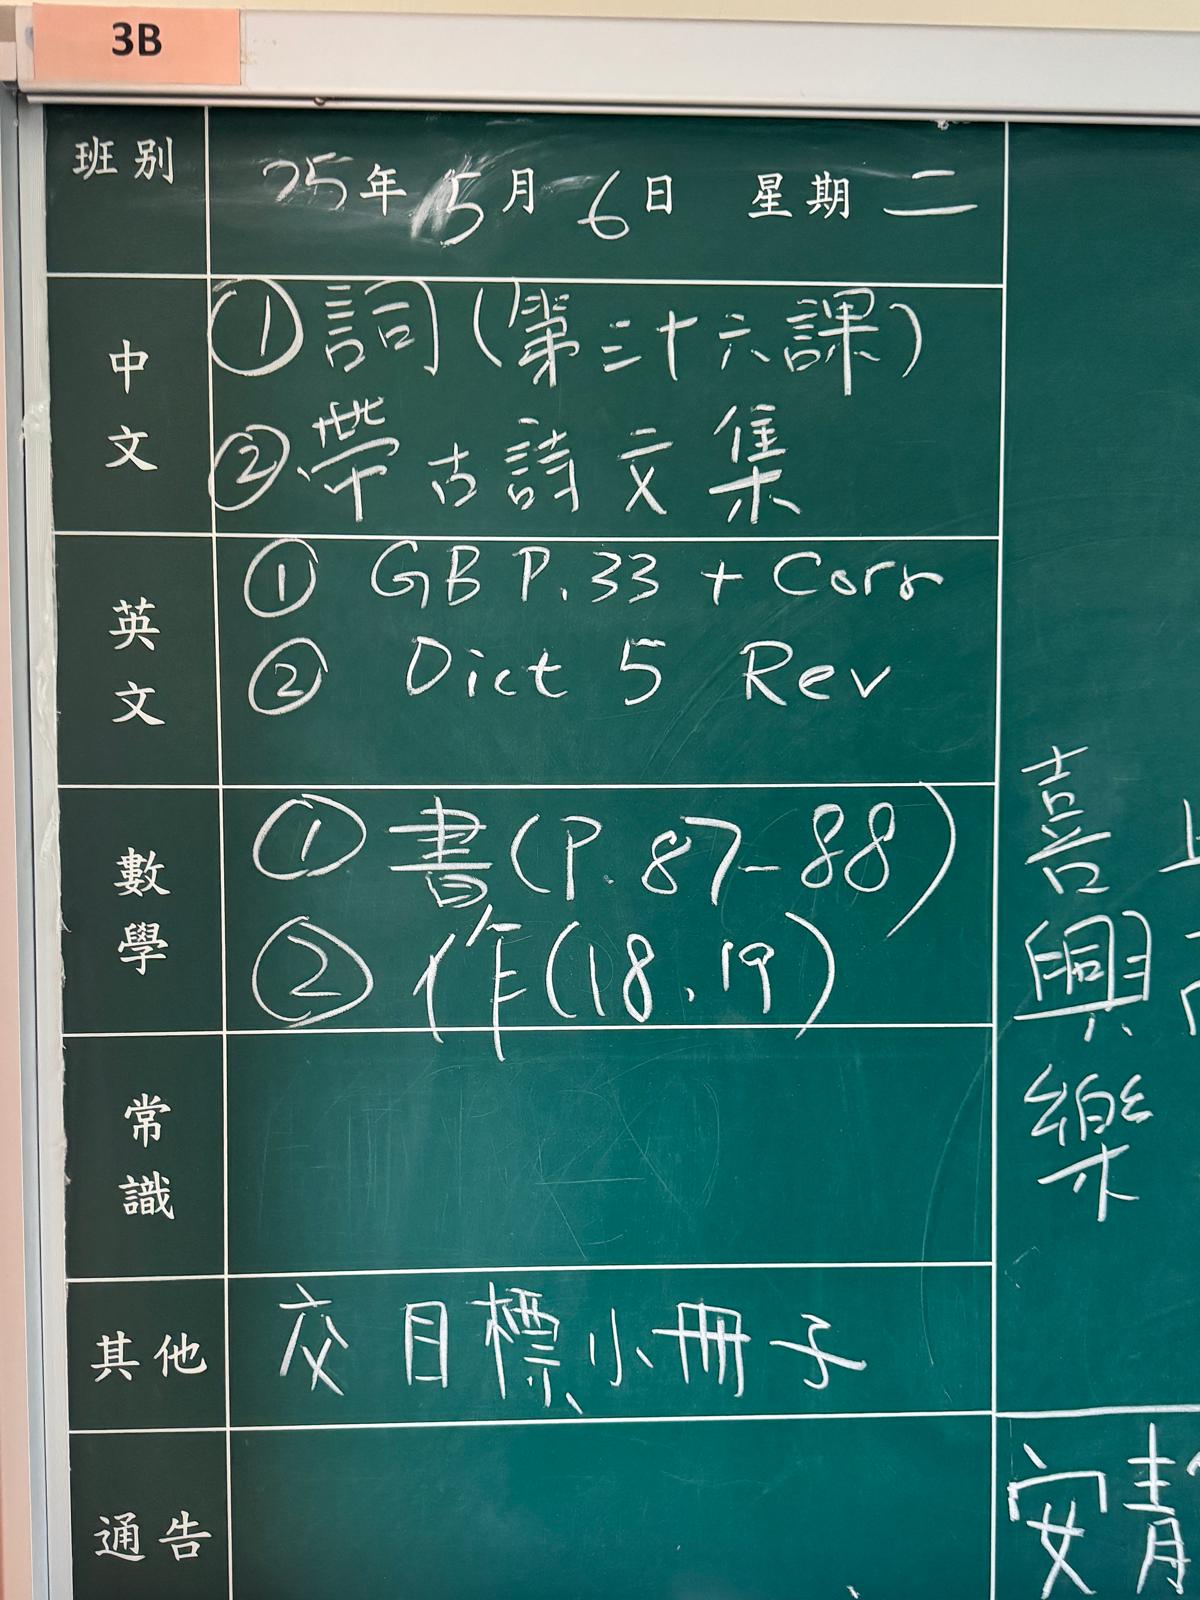 3B
班別
25年 5月 6日 星期二
中文
①詞(第三十六課)
②帶古詩文集
英文
① GB P.33 + Corr
② Dict 5 Rev
數學
①書(P.87-88)
②作(18.19)
常識
其他
交目標小冊子
通告
喜
興
樂
安靜